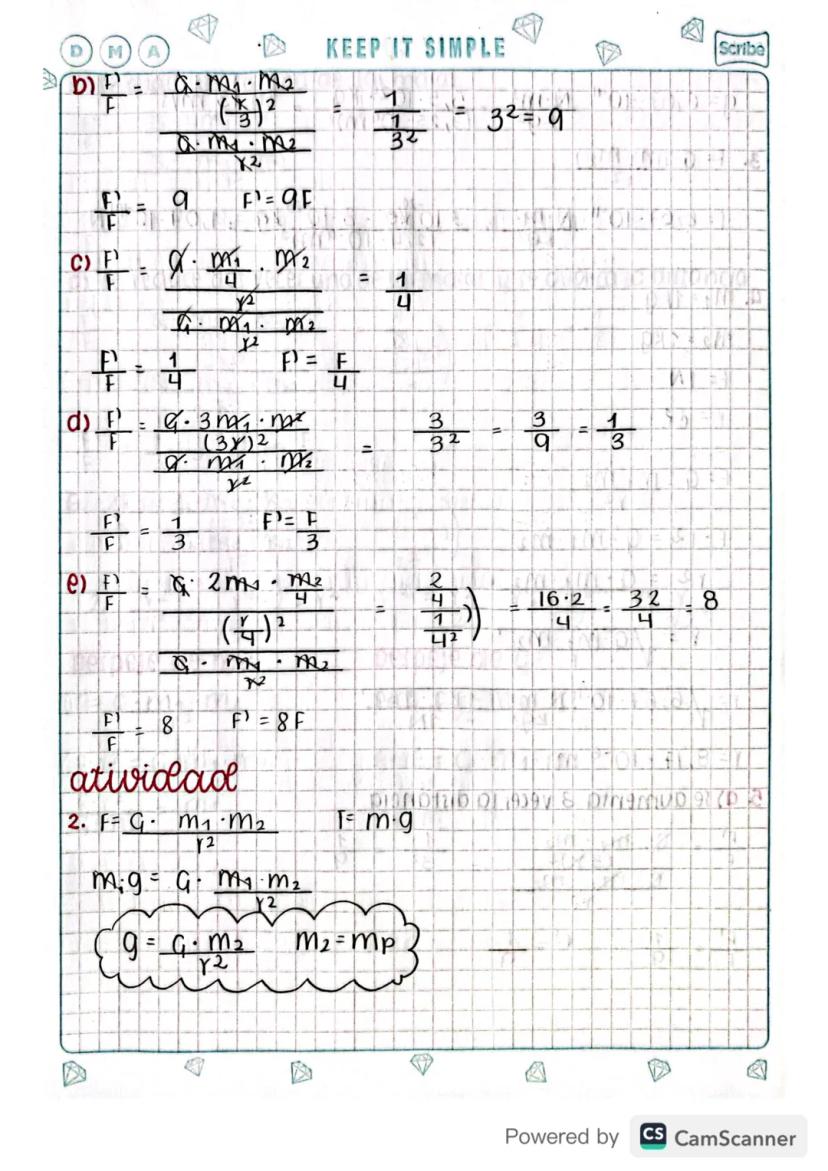 D M A KEEP IT SIMPLE Scribe
b) F'/F = (G · m1 · m2 / (r/3)²) / (G · m1 · m2 / r²) = 1 / (1/3²) = 3² = 9
F'/F = 9 F' = 9F
c) F'/F = (G · m1/4 · m2 / r²) / (G · m1 · m2 / r²) = 1/4
F'/F = 1/4 F' = F/4
d) F'/F = (G · 3m1 · m2 / (3r)²) / (G · m1 · m2 / r²) = 3/3² = 3/9 = 1/3
F'/F = 1/3 F' = F/3
e) F'/F = (G · 2m1 · m2/4 / (r/4)²) / (G · m1 · m2 / r²) = (2/4) / (1/4²) = 16·2/4 = 32/4 = 8
F'/F = 8 F' = 8F
atividad
2. F = G · m1 · m2 / r² F = m·g
m1g = G · m1 · m2 / r²
g = G · m2 / r² m2 = mp
Powered by CS CamScanner